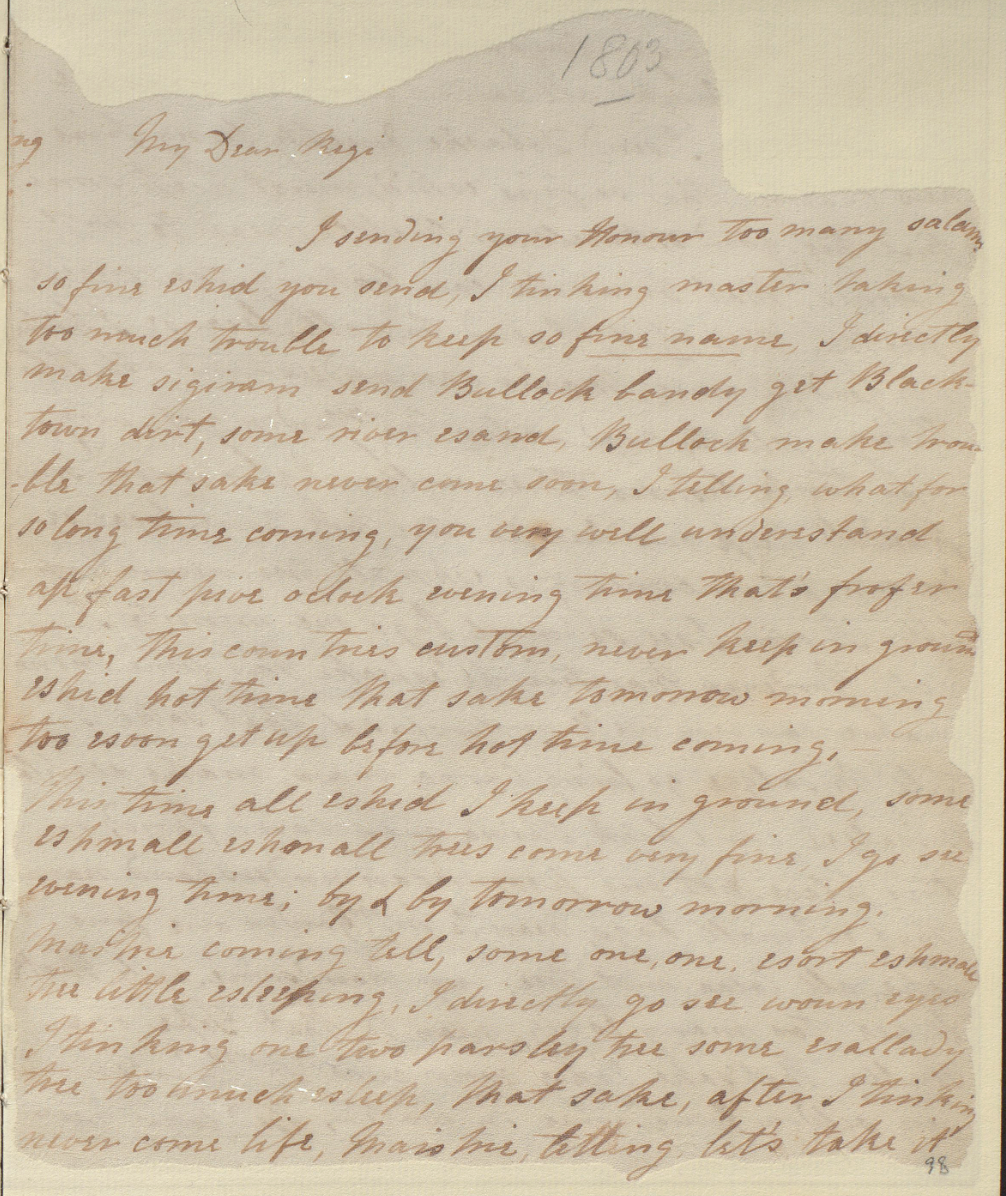 1803
ng My Dear Regi
I sending your Honour too many salams
so fine eshid you send, I tinking master taking
too much trouble to keep so fine name, I directly
make sigiram send Bullock bandy get Black-
town dirt, some river esand, Bullock make trou-
-ble that sake never come soon, I telling what for
so long time coming, you very well understand
ap fast pive oclock evening time that's frofer
time, this countries custom, never keep in ground
eshid hot time that sake tomorrow morning
too esoon get up before hot time coming,
This time all eshid I keep in ground, some
eshmall eshmall trees come very fine, I go see
evening time; by & by tomorrow morning.
coming tell, some one, one, esort eshmall
tree little esleeping, I directly go see woun eyes
I tinking one two parsley tree some esallady
tree too much esleep, that sake, after I tinking
never come life, telling let's take it
98